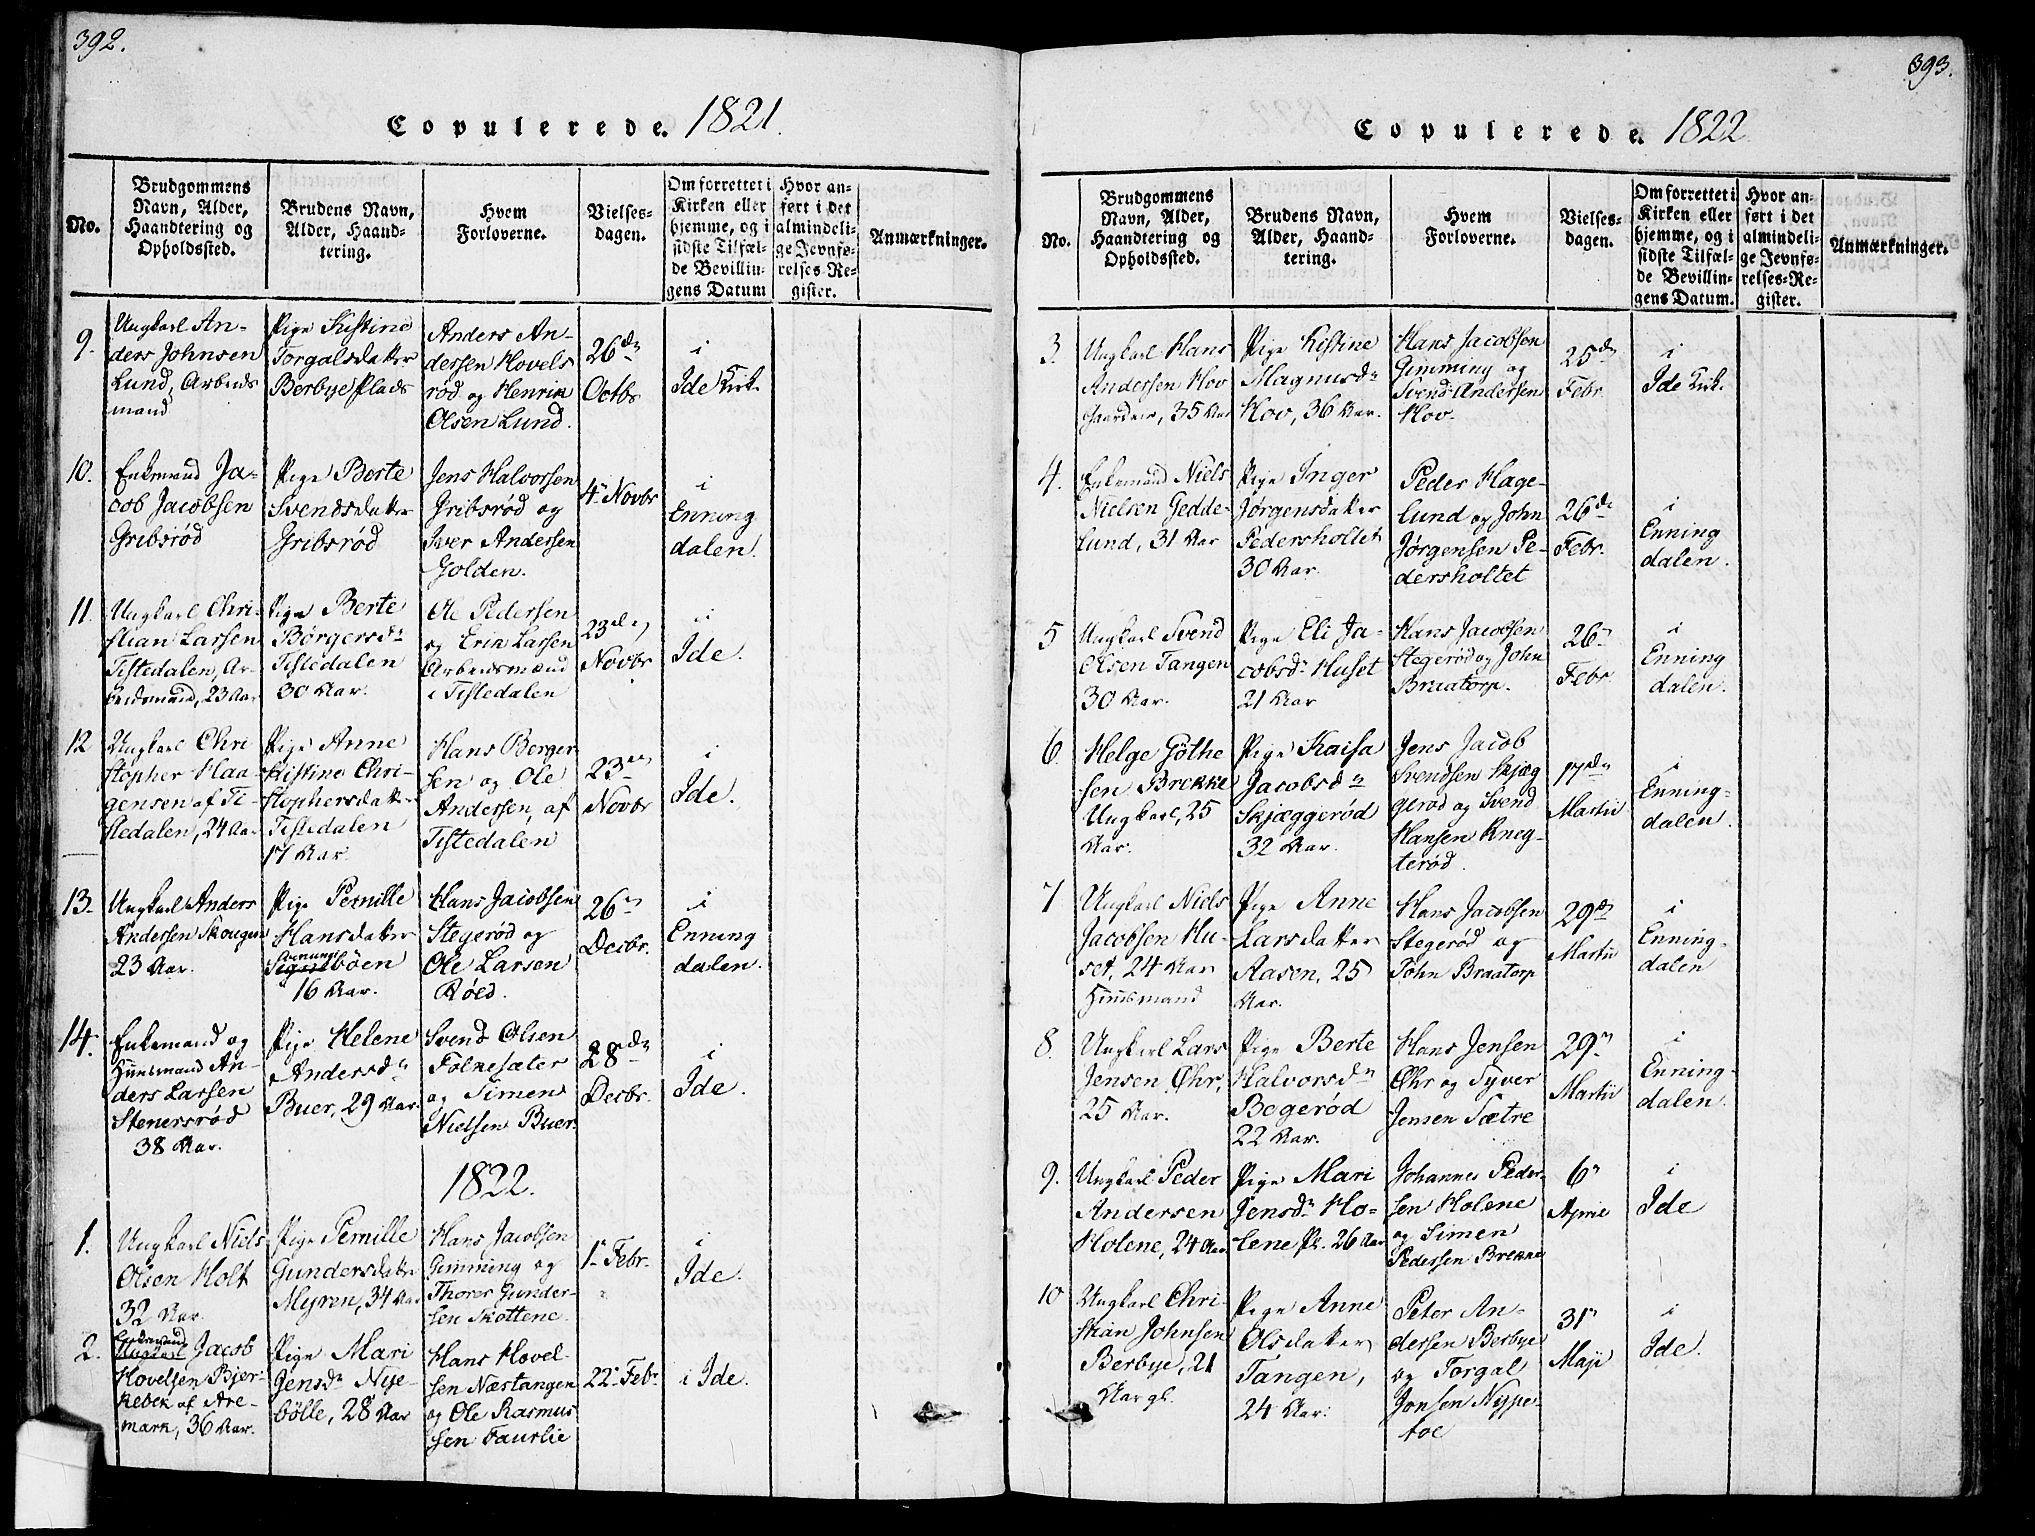 392.
Copulerede. 1821.
No.
Brudgommens
Navn, Alder,
Haandtering og
Opholdssted.
Brudens Navn,
Alder, Haand-
tering.
Hvem
Forloverne.
Vielses-
dagen.
Om forrettet i
Kirken eller
hjemme, og i
sidste Tilfæl-
de Bevillin-
gens Datum
Hvor an-
ført i det
almindeli-
ge Jevnfø-
relses-Re-
gister.
Anmærkninger.
9.
Ungkarl An-
ders Johnsen
Lund, Arbeids
mand
Pige Kistine
Torgalsdatter
Berbye Plads
Anders An-
dersen Hovels
rød og Henrik
Olsen Lund.
26de
Octbr
i
Ide Kirk.
10.
Enkemand Ja-
cob Jacobsen
Gribsrød
Pige Berte
Svendsdatter
Gribsrød
Jens Halvorsen
Gribsrød og
Iver Andersen
Golden.
4 Novbr
i
Enning
dalen.
11.
Ungkarl Chri-
stian Larsen
Tistedalen, Ar-
beidsmand, 23 Aar
Pige Berte
Børgersdr
Tistedalen
30 Aar.
Ole Pedersen
og Erik Larsen
Arbeidsmænd
i Tistedalen
23de
Novbr
i
Ide.
12
Ungkarl Chri
stopher Haa-
gensen af Ti-
stedalen, 24 Aar
Pige Anne
Kistine Chri-
stophersdatter
Tistedalen
17 Aar.
Hans Berger
sen og Ole
Andersen, af
Tistedalen
23
Novbr
i
Ide.
13.
Ungkarl Anders
Andersen Skougen
23 Aar.
Pige Pernille
Hansdatter
bøen
16 Aar.
Hans Jacobsen
Stegerød og
Ole Larsen
Røed.
26
Decbr.
i
Enning
dalen.
14.
Enkemand og
Huusmand An-
ders Larsen
Stenersrød
38 Aar.
Pige Helene
Andersdr
Buer, 29 Aar.
Svend Olsen
Folkesæter
og Simen
Nielsen Buer.
28de
Decbr.
i
Ide.
1822.
1.
Ungkarl Niels
Olsen Holt
32 Aar.
Pige Pernille
Gundersdatter
Myren, 34 Aar
Hans Jacobsen
Gimming og
Thorer Gunder-
sen Skottene.
1 Febr.
i
Ide.
2.
Enkemand
Ungkarl Jacob
Hovelsen Bjer-
kebek af Are-
mark, 36 Aar.
Pige Mari
Jensdr Nye-
bølle, 28 Aar
Hans Hovel-
sen Næstangen
og Ole Rasmus
sen Faurlie
22 Febr
i Ide.
393.
Copulerede. 1822
No.
Brudgommens
Navn, Alder,
Haandtering og
Opholdssted.
Brudens Navn,
Alder, Haand-
tering.
Hvem
Forloverne.
Vielses-
dagen.
Om forrettet i
Kirken eller
hjemme, og i
sidste Tilfæl-
de Bevillin-
gens Datum.
Hvor an-
ført i det
almindeli-
ge Jevnfø-
relses-Re-
gister.
Anmærkninger.
3.
Ungkarl Hans
Andersen Hov
Gaardbr, 35 Aar
Pige Kistine
Magnusdr
Hov, 36 Aar.
Hans Jacobsen
Gimming og
Svend Andersen
Hov.
25de
Febr.
i
Ide Kirk.
4.
Enkemand Niels
Nielsen Gedde-
lund, 31 Aar
Pige Inger
Jørgensdatter
Pedersholtet
30 Aar.
Peder Hage-
lund og John
Jørgensen Pe-
dersholtet
26de
Febr.
i
Enning
dalen.
5
Ungkarl Svend
Olsen Tangen
30 Aar.
Pige Eli Ja-
cobsdr Huset
21 Aar
Hans Jacobsen
Stegerød og John
Braatorp.
26
Febr.
i
Enning
dalen.
6.
Helge Göthe
sen Brekke
Ungkarl, 25
Aar.
Pige Kaisa
Jacobsdr
Skjæggerød
32 Aar.
Jens Jacob
Svendsen Skjæg
gerød og Svend
Hansen Kneg-
terød.
17de
Martii
i
Enning-
dalen.
7
Ungkarl Niels
Jacobsen Hu-
set, 24 Aar
Huusmand
Pige Anne
Larsdatter
Aasen, 25
Aar.
Hans Jacobsen
Stegerød og
John Braatorp
29de
Martii
i
Enning-
dalen
8.
Ungkarl Lars
Jensen Øhr,
25 Aar.
Pige Berte
Halvorsdr
Bøgerød
22 Aar.
Hans Jensen
Øhr og Syver
Jensen Sætre
29
Martii
i
Enning-
dalen.
9.
Ungkarl Peder
Andersen
Holene, 24 Aar
Pige Mari
Jensdr Ho-
lene Pl. 26 Aar
Johannes Peder-
sen Holene
og Simen
Pedersen Brekke
6
April
i
Ide
10
Ungkarl Chri-
stian Johnsen
Berbye, 21
Aar gl.
Pige Anne
Olsdatter
Tangen,
24 Aar.
Peter An-
dersen Berbye
og Torgal
Jonsen Nype-
toe
31
Maji
i
Ide.